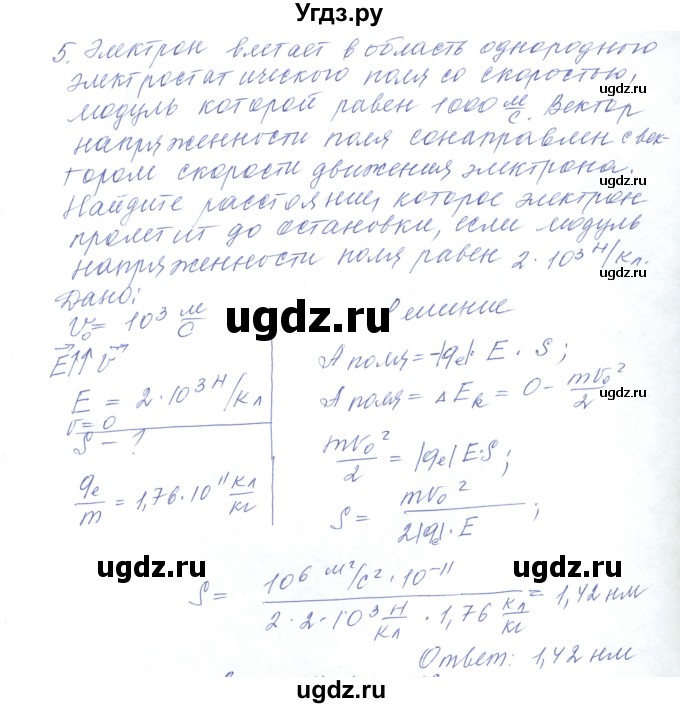 Угдз.ру
5. Электрон влетает в область однородного
электростатического поля со скоростью,
модуль которой равен 1000 м/с. Вектор
напряженности поля сонаправлен с век-
тором скорости движения электрона.
Найдите расстояние, которое электрон
пролетит до остановки, если модуль
напряженности поля равен 2·10³ Н/Кл.
Дано:
v₀ = 10³ м/с
E⃗ ↑↑ v⃗
E = 2·10³ Н/Кл
v = 0
S - ?
qₑ/m = 1,76·10¹¹ Кл/кг
A поля = -|qₑ| E · S;
A поля = ΔEₖ = 0 - mv₀²/2
mv₀²/2 = |qₑ| E·S;
S = mv₀²/(2|qₑ|·E);
S = (10⁶ м²/с² · 10⁻¹¹)/(2·2·10³ Н/Кл · 1,76 Кл/кг) = 1,42 нм
Ответ: 1,42 нм
ugdz.ru
ugdz.ru
ugdz.ru
ugdz.ru
ugdz.ru
ugdz.ru
ugdz.ru
ugdz.ru
ugdz.ru
ugdz.ru